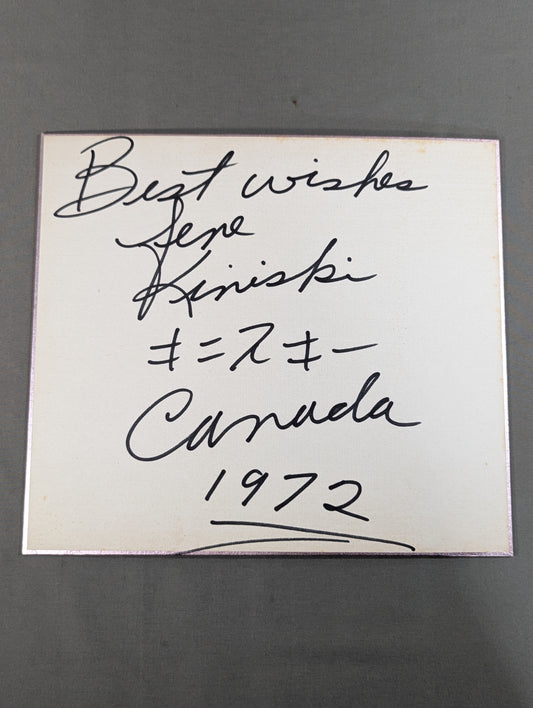 Best wishes
Gene
Kiniski
キニスキー
Canada
1972